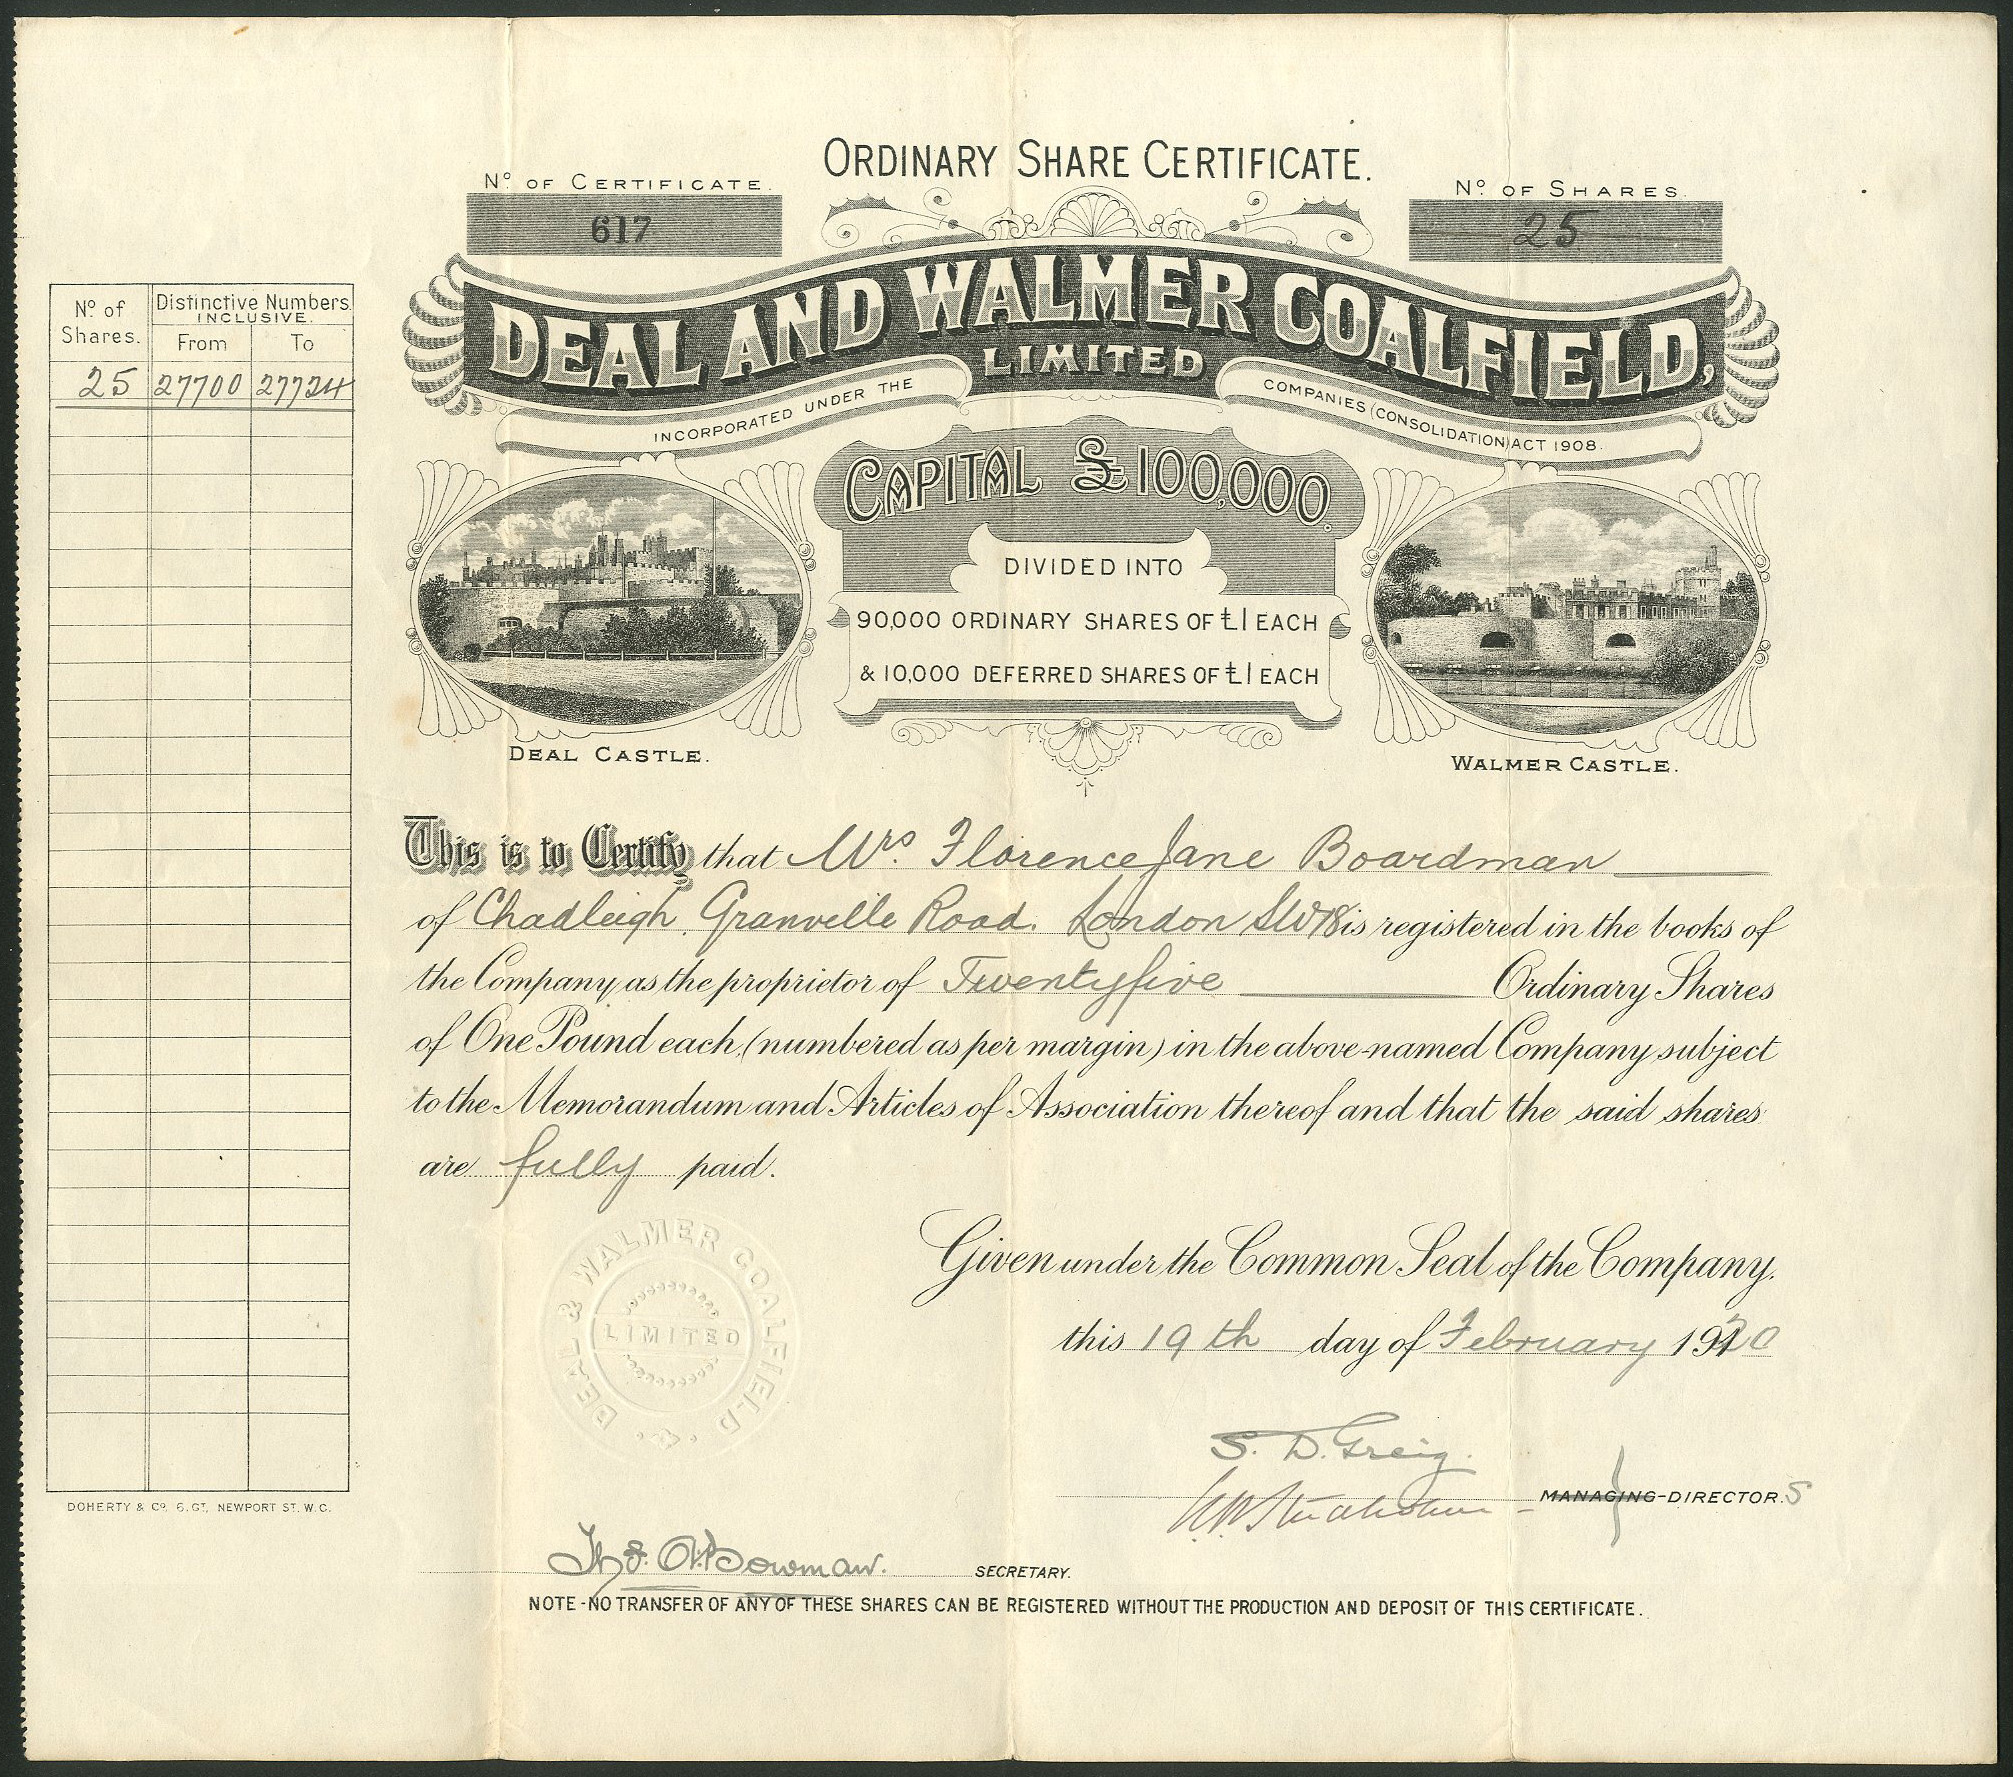 ORDINARY SHARE CERTIFICATE.
No. OF CERTIFICATE.
617
No. OF SHARES.
25
DEAL AND WALMER COALFIELD,
LIMITED
INCORPORATED UNDER THE COMPANIES (CONSOLIDATION) ACT 1908.
No. of Shares.
Distinctive Numbers
INCLUSIVE.
From To
25 27700 27724
CAPITAL £100,000.
DIVIDED INTO
90,000 ORDINARY SHARES OF £1 EACH
& 10,000 DEFERRED SHARES OF £1 EACH
DEAL CASTLE.
WALMER CASTLE.
This is to Certify that Mrs. Florence Jane Boardman
of Chadleigh, Granville Road. London SW18 is registered in the books of
the Company as the proprietor of Twentyfive Ordinary Shares
of One Pound each, (numbered as per margin) in the above-named Company subject
to the Memorandum and Articles of Association thereof and that the said shares
are fully paid.
DEAL & WALMER COALFIELD
LIMITED
Given under the Common Seal of the Company.
this 19th day of February 1920
S. D. Greig.
MANAGING-DIRECTOR.S
DOHERTY & Co. 6. GT. NEWPORT ST. W.C.
Bowman.
SECRETARY.
NOTE - NO TRANSFER OF ANY OF THESE SHARES CAN BE REGISTERED WITHOUT THE PRODUCTION AND DEPOSIT OF THIS CERTIFICATE.